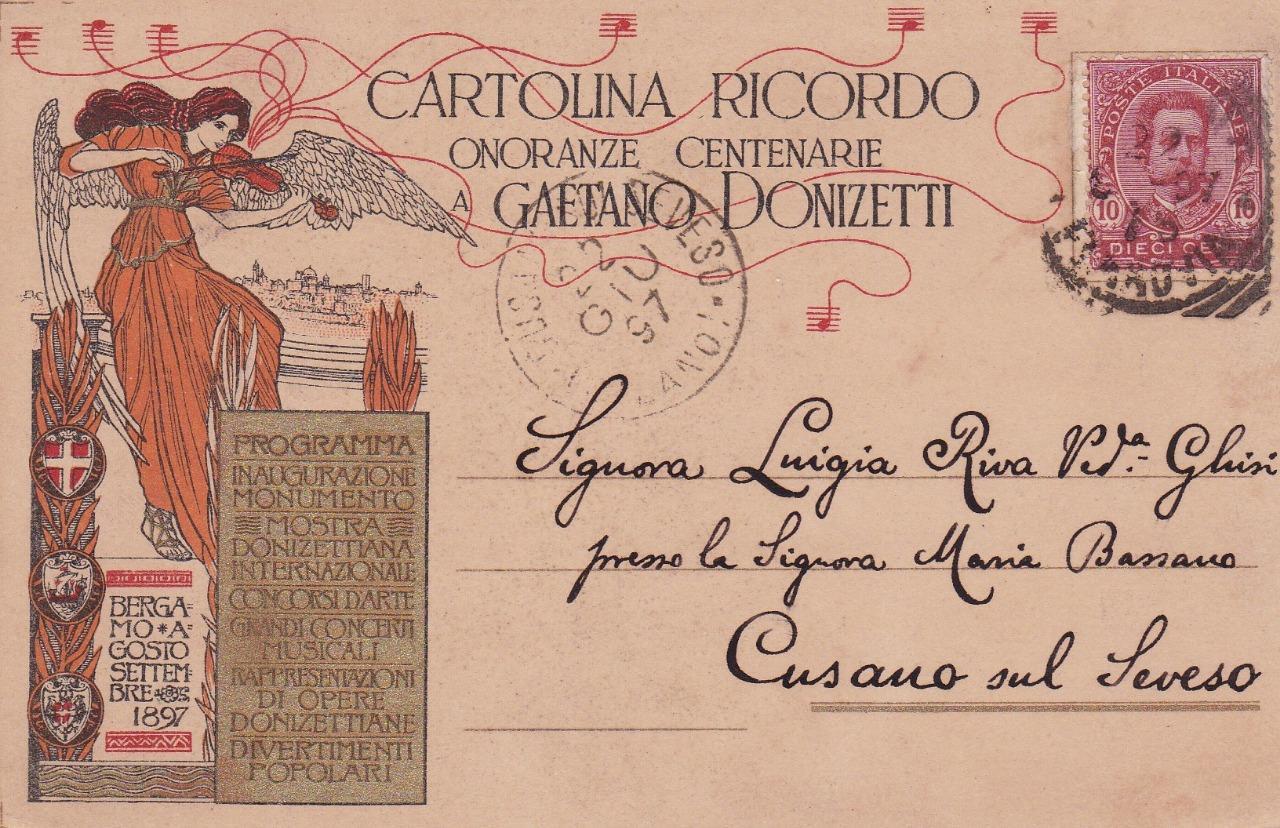 CARTOLINA RICORDO
ONORANZE CENTENARIE
A GAETANO DONIZETTI
POSTE ITALIANE
10 10
DIECI
2
GIU
97
Signora Luigia Riva Ved.ª Ghisi
presso la Signora Maria Bassano
Cusano sul Seveso
PROGRAMMA
INAUGURAZIONE
MONUMENTO
MOSTRA
DONIZETTIANA
INTERNAZIONALE
CONCORSI D'ARTE
GRANDI CONCERTI
MUSICALI
RAPPRESENTAZIONI
DI OPERE
DONIZETTIANE
DIVERTIMENTI
POPOLARI
BERGA-
MO * A-
GOSTO
SETTEM-
BRE
1897